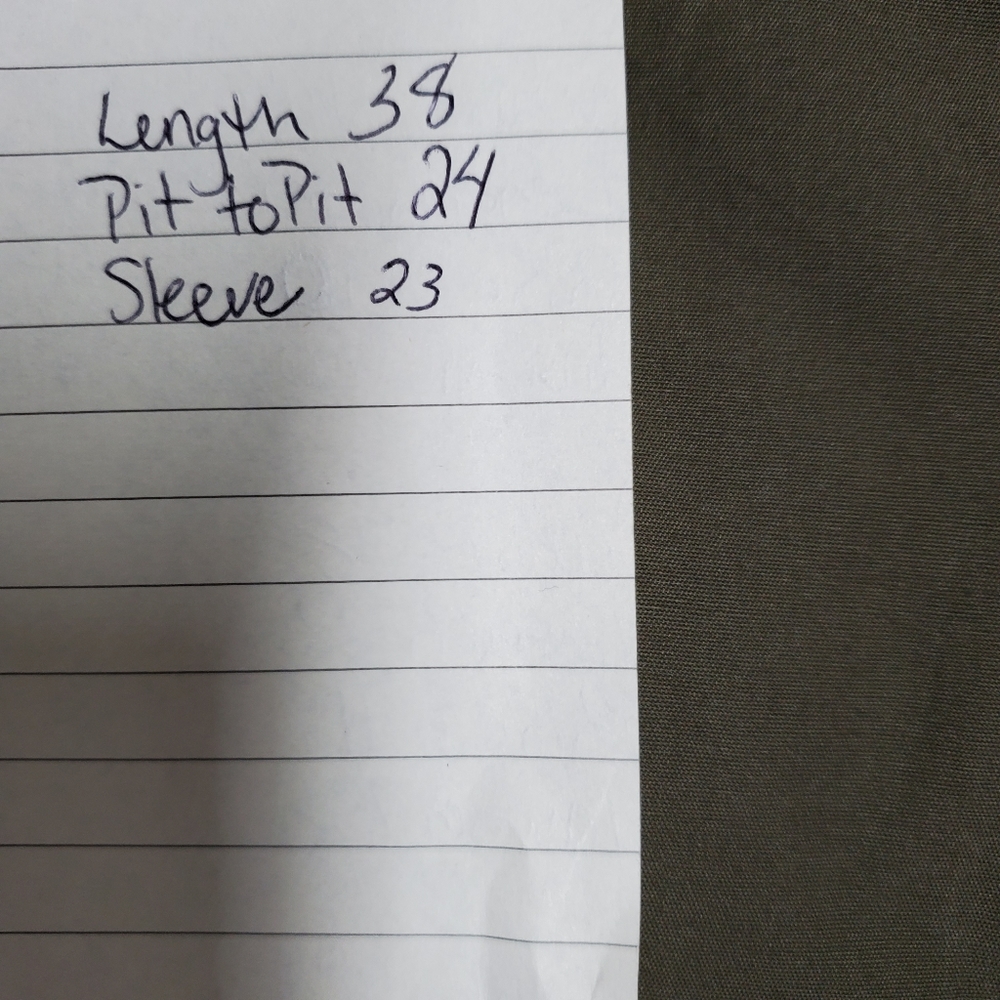 Length 38
Pit to Pit 24
Sleeve 23